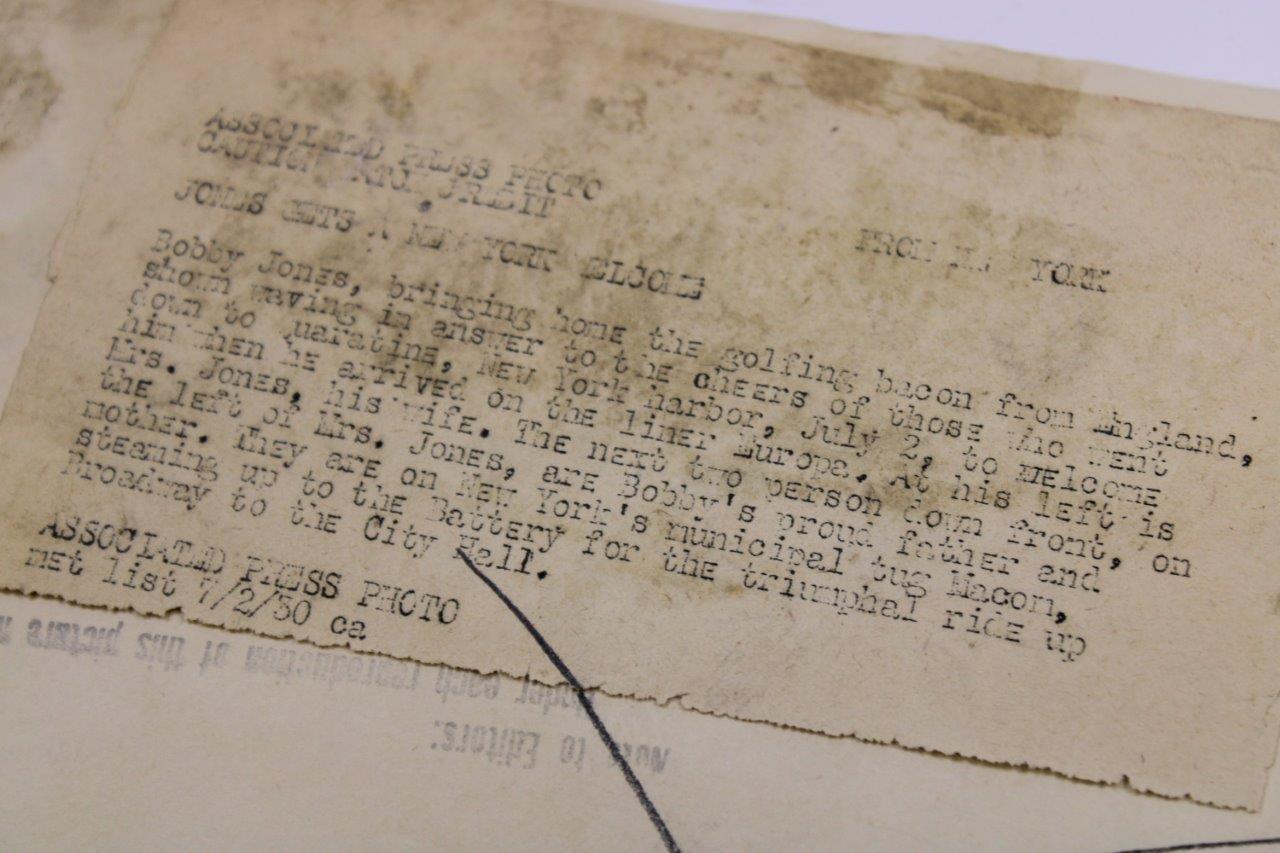 ASSOCIATED PRESS PHOTO
CAUTION
JONES GETS A NEW YORK WELCOME FROM NEW YORK
Bobby Jones, bringing home the golfing bacon from England,
shown waving in answer to the cheers of those who went
down to quaratine, New York harbor, July 2, to welcome
him when he arrived on the liner Europa. At his left is
Mrs. Jones, his wife. The next two person down front, on
the left of Mrs. Jones, are Bobby's proud father and
mother. They are on New York's municipal tug Macon,
steaming up to the Battery for the triumphal ride up
Broadway to the City Hall.
ASSOCIATED PRESS PHOTO
met list 7/2/30 ca
Note to Editors:
Under each reproduction of this picture